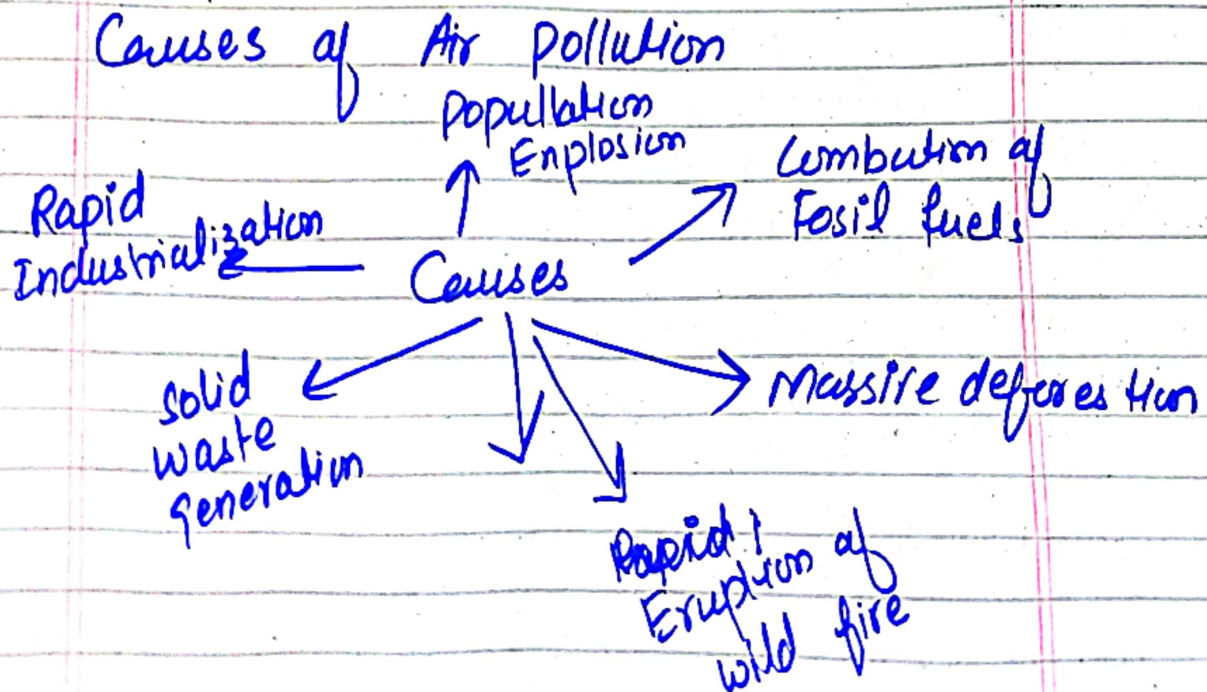 Causes of Air pollution
Popullation
Explosion
Combution of
Fosil fuels
Rapid
Industrialization
Causes
Massive deforestion
Solid
waste
generation
Rapid
Eruption of
wild fire